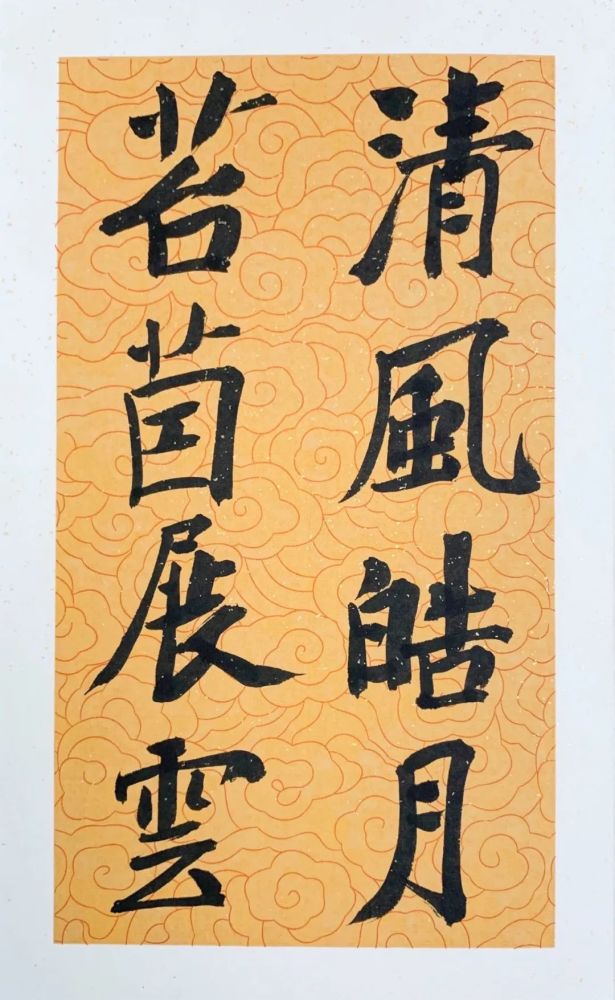 清風皓月
苔茵展雲